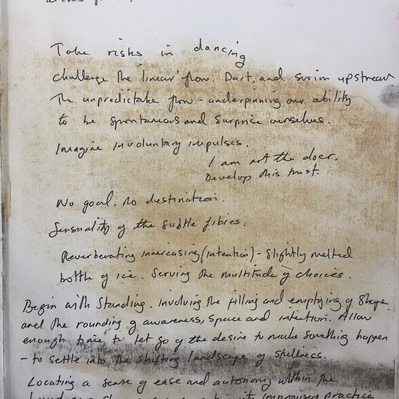 Take risks in dancing
challenge the 'linear' flow. Dart, and swim upstream
The unpredictable flow - underpinning our ability
to be spontaneous and surprise ourselves.
Imagine involuntary impulses.
I am not the doer.
Develop this trust.
No goal. no destination.
Sensuality of the subtle fibres.
Reverberating (intention) - slightly melted
bottle of ice. Serving the multitude of choices.
Begin with Standing. Involving the filling and emptying of Shape
and the rounding of awareness, space and intention. Allow
enough time to let go of the desire to make something happen
- to settle into the shifting landscape of stillness.
Locating a sense of ease and autonomy within the
improvised practice